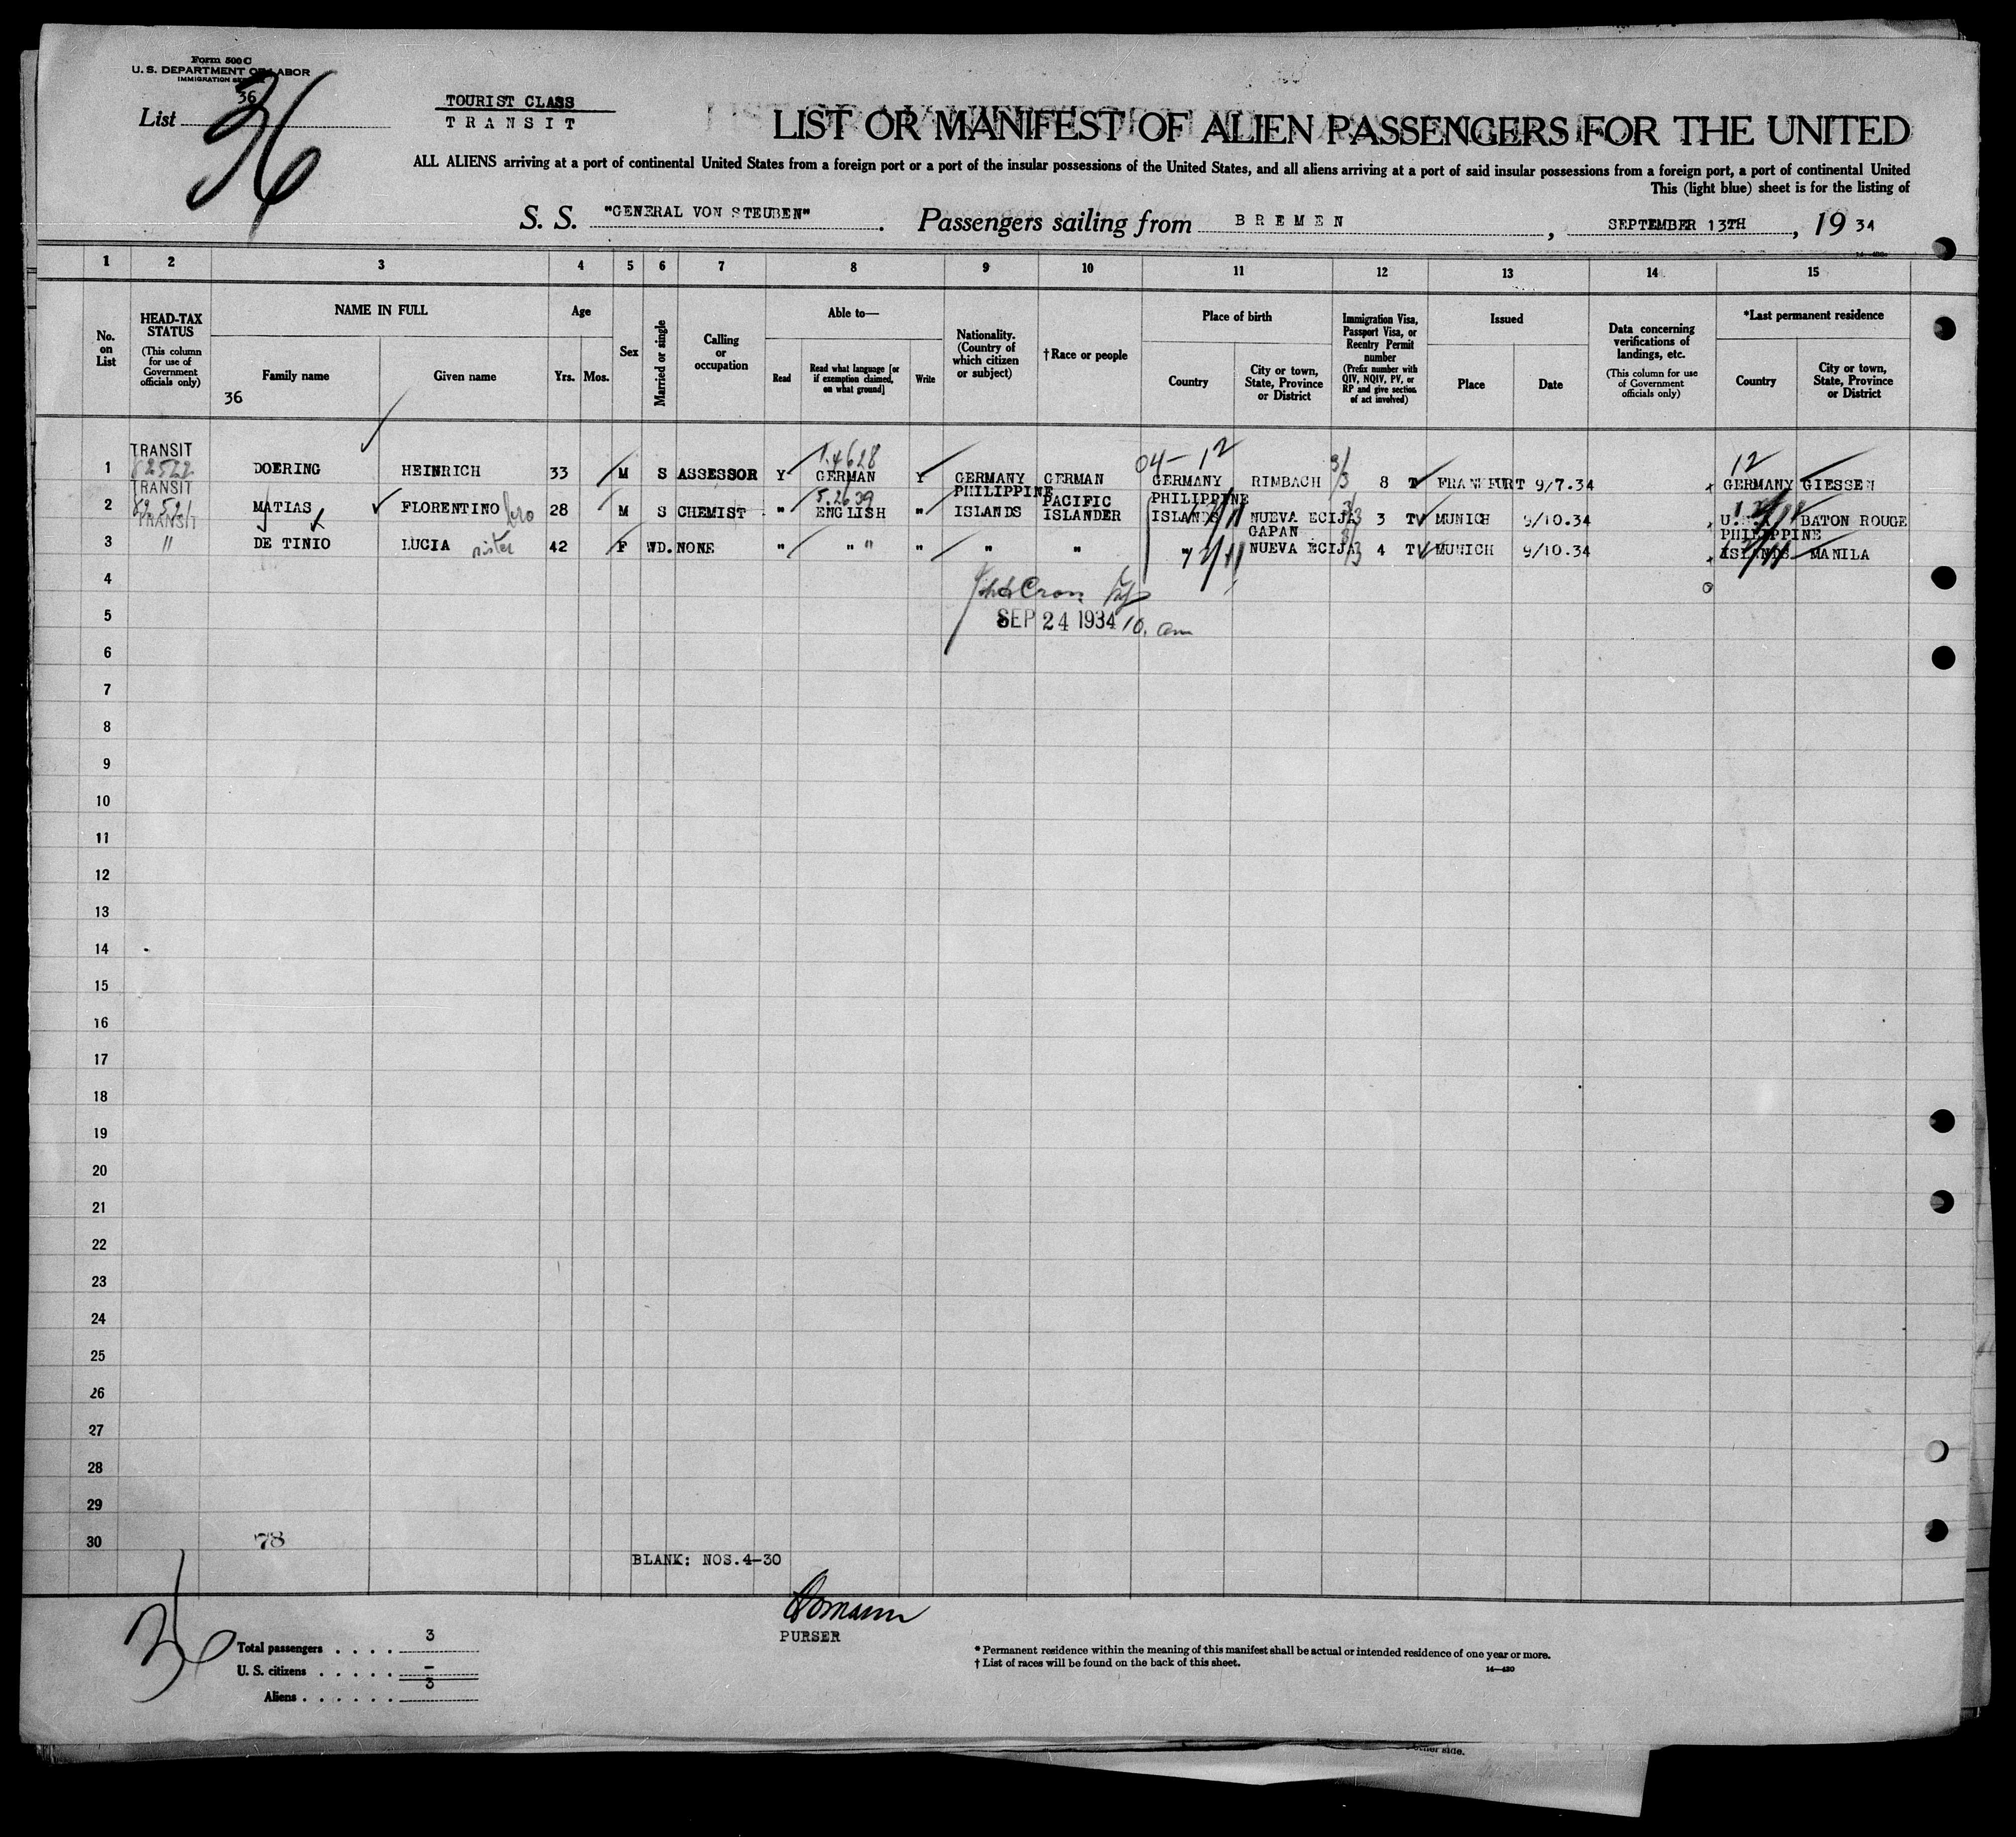 Form 500 C
U. S. DEPARTMENT OF LABOR
IMMIGRATION SERVICE
36
List
36
TOURIST CLASS
TRANSIT
LIST OR MANIFEST OF ALIEN PASSENGERS FOR THE UNITED
ALL ALIENS arriving at a port of continental United States from a foreign port or a port of the insular possessions of the United States, and all aliens arriving at a port of said insular possessions from a foreign port, a port of continental United
This (light blue) sheet is for the listing of
S. S. "GENERAL VON STEUBEN". Passengers sailing from BREMEN, SEPTEMBER 13TH, 19 34
1 2 3 4 5 6 7 8 9 10 11 12 13 14 15
No. on List
HEAD-TAX STATUS
(This column for use of Government officials only)
NAME IN FULL
Family name
Given name
36
Age
Yrs. Mos.
Sex
Married or single
Calling or occupation
Able to—
Read
Read what language [or if exemption claimed, on what ground]
Write
Nationality. (Country of which citizen or subject)
† Race or people
Place of birth
Country
City or town, State, Province or District
Immigration Visa, Passport Visa, or Reentry Permit number
(Prefix number with QIV, NQIV, PV, or RP and give section of act involved)
Issued
Place
Date
Data concerning verifications of landings, etc.
(This column for use of Government officials only)
*Last permanent residence
Country
City or town, State, Province or District
TRANSIT 1.4628 04-12 12
1 82522 DOERING HEINRICH 33 M S ASSESSOR Y GERMAN Y GERMANY GERMAN GERMANY RIMBACH 3/3 8 T FRANKFURT 9/7.34 GERMANY GIESSEN
TRANSIT 5.2639 PHILIPPINE PACIFIC PHILIPPINE
2 82521 MATIAS FLORENTINO bro 28 M S CHEMIST " ENGLISH " ISLANDS ISLANDER ISLANDS NUEVA ECIJA 3/3 3 TV MUNICH 9/10.34 U.S.A. BATON ROUGE
TRANSIT GAPAN PHILIPPINE
3 " DE TINIO LUCIA sister 42 F WD. NONE " " " " " " " NUEVA ECIJA 3/3 4 TV MUNICH 9/10.34 ISLANDS MANILA
4
5 SEP 24 1934 10. am
6
7
8
9
10
11
12
13
14
15
16
17
18
19
20
21
22
23
24
25
26
27
28
29
30 78
BLANK: NOS.4-30
PURSER
36
Total passengers . . . . 3
U. S. citizens . . . . . -
Aliens . . . . . . 3
* Permanent residence within the meaning of this manifest shall be actual or intended residence of one year or more.
† List of races will be found on the back of this sheet.
14—420
other side.